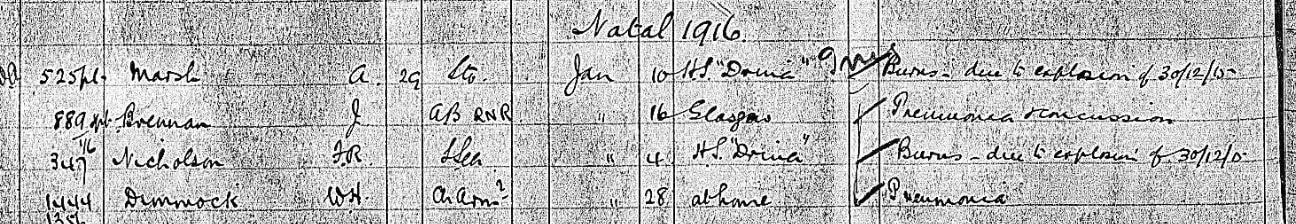 Natal 1916.
525 Marsh A. 29 Sto. Jan 10 H.S. "Drina" Burns - due to explosion of 30/12/15
889 Brennan J. AB RNR " 16 Glasgow Pneumonia & concussion
347 Nicholson F.R. L Sea " 4. H.S. "Drina" Burns - due to explosion of 30/12/15
1444 Dimmock W.H. Ch. Arm? " 28 at home Pneumonia